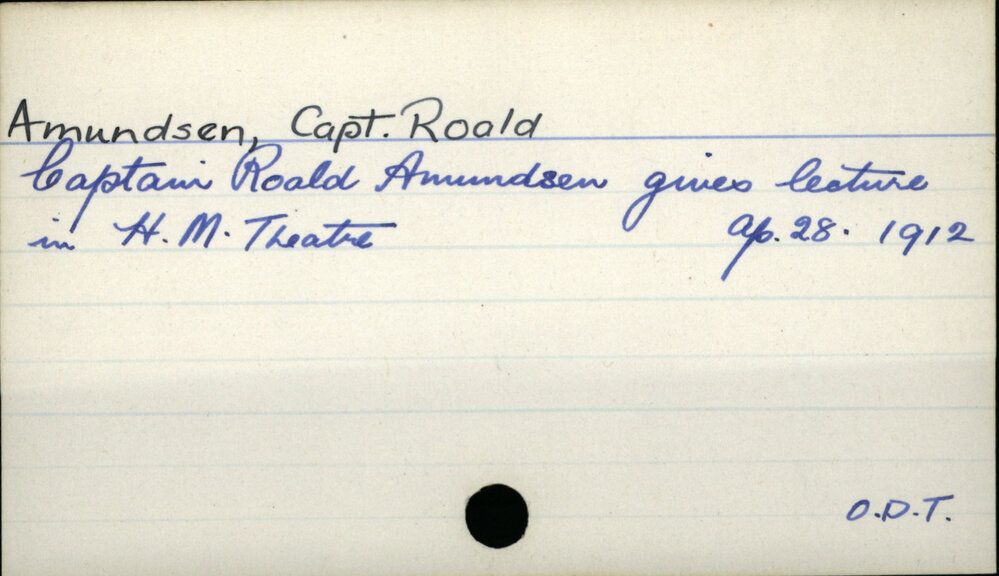 Amundsen, Capt. Roald
Captain Roald Amundsen gives lecture
in H. M. Theatre Ap. 28. 1912
O.D.T.